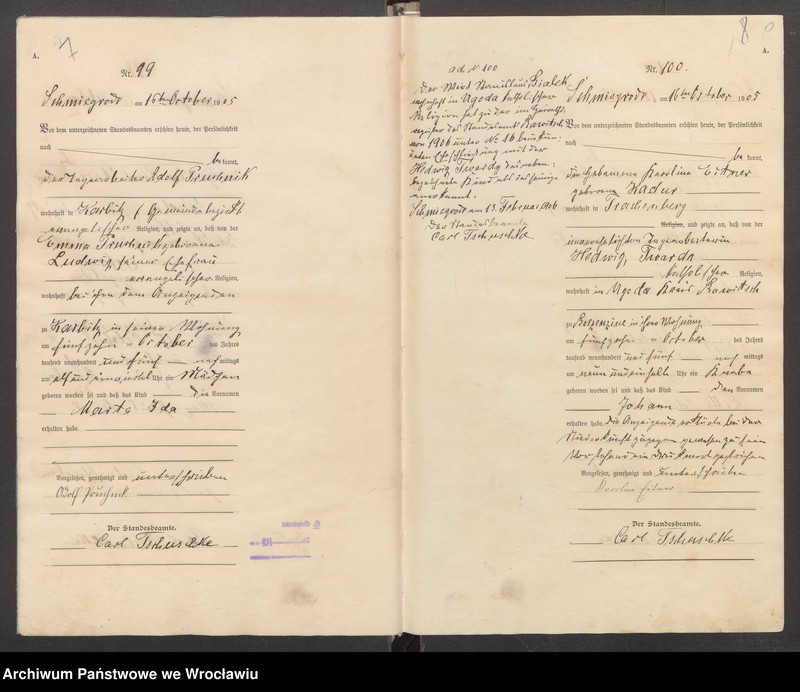 7
A.
Nr. 99
Schmiegrode am 16ten October 1905
Vor dem unterzeichneten Standesbeamten erschien heute, der Persönlichkeit
nach
be kannt,
der Tagearbeiter Adolf
wohnhaft in Karbitz (Gemeindebezirk
evangelischer Religion, und zeigte an, daß von der
Emma geborene
Ludwig seiner Ehefrau
evangelischer Religion,
wohnhaft bei ihm dem Anzeigenden
zu Karbitz in seiner Wohnung
am fünfzehn ten October des Jahres
tausend neunhundert und fünf nachmittags
um elf und Uhr ein Mädchen
geboren worden sei und daß das Kind die Vornamen
Marta Ida
erhalten habe.
Vorgelesen, genehmigt und unterschrieben
Adolf
Der Standesbeamte.
Carl Tschuschke
8
A.
ad N 100
Der Wirt Stanislaus Bialek
wohnhaft in Ugoda katholischer
Religion hat zu der im Heirats-
register des Standesamt Rawitsch
von 1906 unter No 16 beurkun-
deten Eheschließung mit der
Hedwig Twardy das neben-
bezeichnete Kind als das seinige
anerkannt.
Schmiegrode am 13. Februar 1906
Der Standesbeamte
Carl Tschuschke
Nr. 100.
Schmiegrode am 16ten October 1905
Vor dem unterzeichneten Standesbeamten erschien heute, der Persönlichkeit
nach
be kannt,
die Hebamme Karolina Eitner
geborene
wohnhaft in Trachenberg
Religion, und zeigte an, daß von der
unverehelichten Tagearbeiterin
Hedwig, Twarda
katholischer Religion,
wohnhaft in Ugoda Kreis Rawitsch
zu in ihrer Wohnung
am fünfzehn ten October des Jahres
tausend neunhundert und fünf nach mittags
um neun und einhalb Uhr ein Knabe
geboren worden sei und daß das Kind den Vornamen
Johann
erhalten habe. Die Anzeigende erklärte bei der
Niederkunft zugegen gewesen zu sein
Vorstehend ein Druckwort gestrichen
Vorgelesen, genehmigt und unterschrieben
Karoline Eitner
Der Standesbeamte.
Carl Tschuschke
Archiwum Państwowe we Wrocławiu